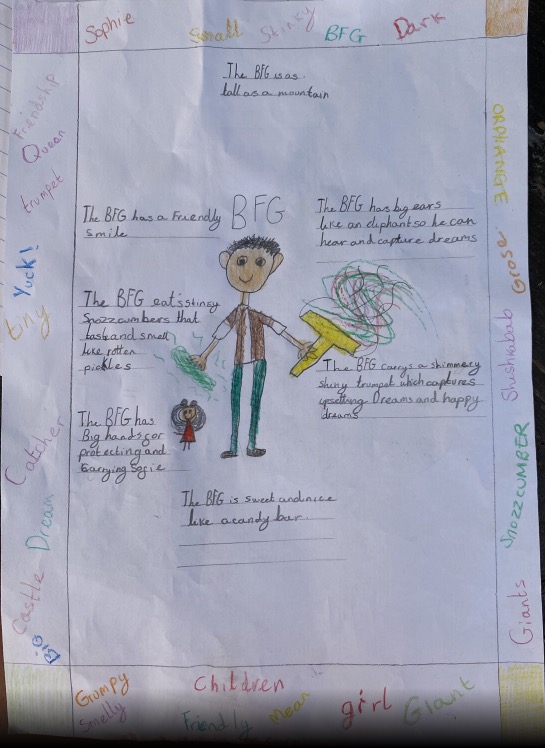 Sophie Small Stinky BFG Dark
Friendship
Queen
trumpet
Yuck!
tiny
Catcher
Dream
Castle
Big
The BFG is as
tall as a mountain
BFG
The BFG has a Friendly
smile
The BFG has big ears
like an eliphant so he can
hear and capture dreams
The BFG eat's stinsy
Snozzcumbers that
taste and smell
like rotten
pickles
The BFG carrys a shimmery
shiny trumpet which captures
upsetting Dreams and happy
dreams
The BFG has
Big hands for
protecting and
carrying Sofie
The BFG is sweet and nice
like a candy bar.
ORPHANGE
Grose
Shushkabab
Snozzcumber
Giants
Grumpy
Smelly
Children
Friendly
Mean
girl
Giant